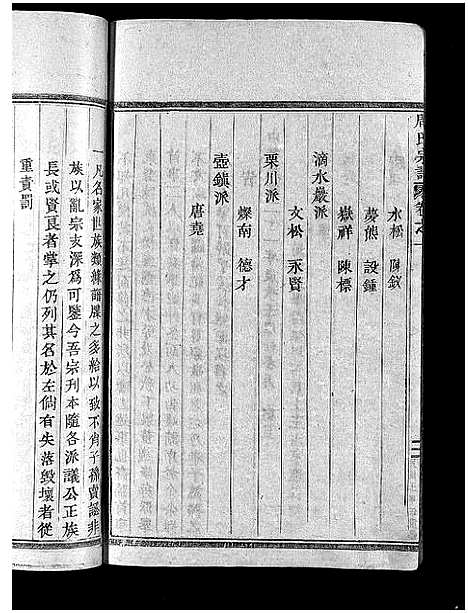 周氏宗譜
水松
夢熊 設鍾
嶽祥 陳標
滴水巖派
文松 永賢
栗川派
燦南 德才
壺鎮派
唐堯
一凡名家世族類緣譜牒之多給以致不肖子孫賣譜非
族以亂宗支深爲可鑒今吾宗刊本隨各派議公正族
長或賢良者掌之仍列其名於左倘有失落毀壞者從
重責罰